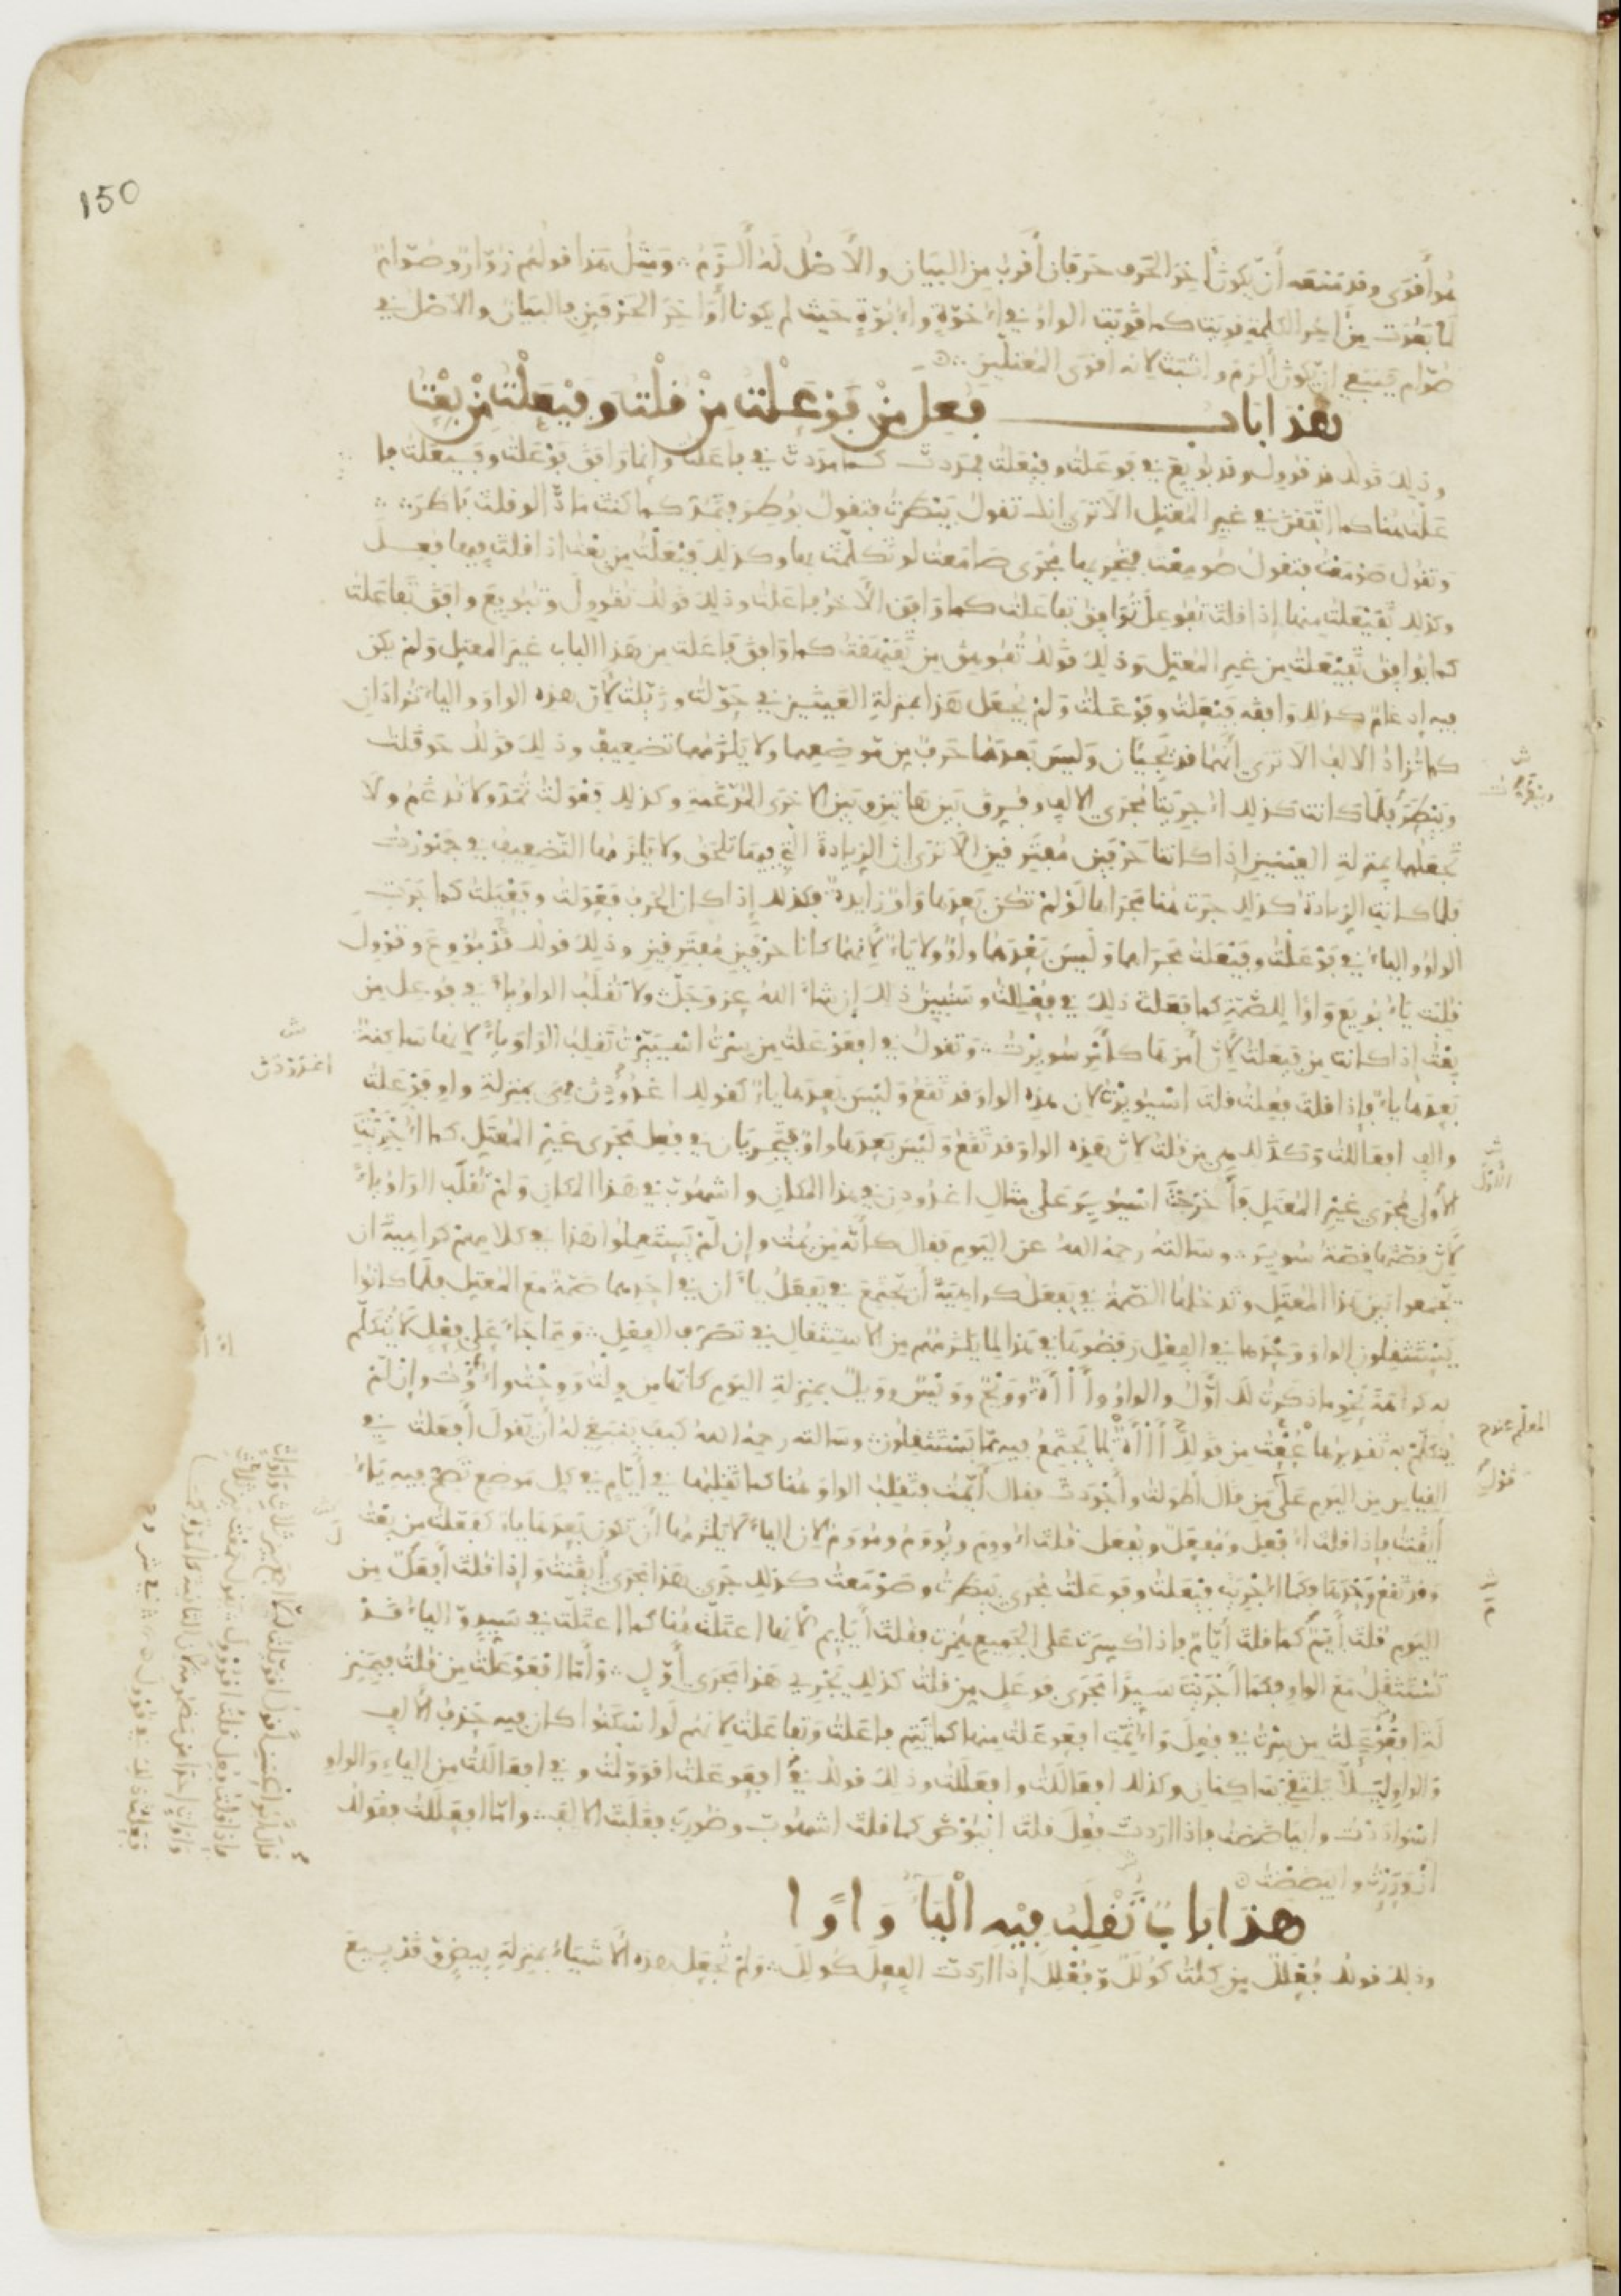 150
هو أقوى وقد منعه أن يكون آخر الحرف حرفان أقرب من البيان والأصل له ألزم ∴ ومثل هذا قولهم زوّار وصوّام
لما بعدت من آخر الكلمة قويت كما قويت الواو في أخوّة وأبوّة حيث لم يكونا أواخر الحرفين فالبيان والأصل في
صوّام ينبغي أن يكون ألزم وأثبت لأنه أقوى المعتلين
هذا باب فعل من فوعلت من قلت وفيعلت من بعت
وذلك قولك قد قوول وقد بويع في فوعلت وفيعلت فمددت كما مددت في فاعلت وإنما وافق فوعلت وفيعلت فا
علت هنا كما اتفقن في غير المعتل ألا ترى أنك تقول بيطرت فتقول بوطر فتمد كما كنت مادّا لو قلت باطر ∴
وتقول صومعت فتقول صومعت فتجريها مجرى صامعت لو تكلمت بها وكذلك فيعلت من بعت إذا قلت فيها فعل
وكذلك تفيعلت منها إذا قلت تفوعل توافق تفاعلت كما وافق الآخر فاعلت وذلك قولك تقوول وتبويع وافق تفاعلت
كما يوافق تفيعلت من غير المعتل وذلك قولك تفوهق من تفيهقت كما وافق فاعلت من هذا الباب غير المعتل ولم يكن
فيه إدغام كذلك وافقه فيعلت وفوعلت ولم يجعل هذا بمنزلة العينين في حوّلت وزيّلت لأن هذه الواو والياء تزادان
كما تزاد الألف ألا ترى أنهما قد تجيئان وليس بعدهما حرف من موضعهما ولا يلزمهما تضعيف وذلك قولك حوقلت
وبيطر فلما كانت كذلك أجريتا مجرى الألف وفرق بين هاتين وبين الأخرى المدغمة وكذلك فعولت تمد ولا تدغم ولا
تجعلها بمنزلة العينين إذا كانتا حرفين مفترقين ألا ترى أن الزيادة التي فيها تلحق ولا يلزمها التضعيف في جهورت
فلما كانت الزيادة كذلك جرت هنا مجراها لو لم تكن بعدها واو زايدة وكذلك إذا كان الحرف فعولت وفعيلت كما جرت
الواو والياء في فوعلت وفيعلت مجراهما وليس بعدهما واو ولا ياء لأنهما كانا حرفين مفترقين وذلك قولك قد بووع وقوول
قلبت ياء بويع واوا للضمة كما فعلت ذلك في فعللت وسنبين ذلك إن شاء الله عز وجل ولا تقلب الواو ياء في فوعل من
بعت إذا كانت من فيعلت لأن أمرها كأمر سويرت ∴ وتقول في افعوعلت من سرت اسييرت تقلب الواو ياء لأنها ساكنة
بعدها ياء فإذا قلت فعلت قلت اسيويرت لأن هذه الواو قد تقع وليس بعدها ياء كقولك اغدودن فهي بمنزلة واو فوعلت
وألف افعاللت وكذلك هي من قلت لأن هذه الواو قد تقع وليس بعدها واو فيجريان في فعل مجرى غير المعتل كما أجريت
الأولى مجرى غير المعتل فأخرجت اسيوير على مثال اغدودن في هذا المكان واشهوب في هذا المكان ولم تقلب الواو ياء
لأن قصتها قصة سوير ∴ وسألته رحمه الله عن اليوم فقال كأنه من يمت وإن لم يستعملوا هذا في كلامهم كراهية أن
يجمعوا بين هذا المعتل وتدخلها الضمة في يفعل كراهية أن يجتمع في يفعل ياءان في إحداهما ضمة مع المعتل فلما كانوا
يستثقلون الواو وحدها في الفعل رفضوها في هذا لما يلزمهم من الاستثقال في تصرف الفعل ∴ ومما جاء على فعل لا يتكلم
به كراهة نحو ما ذكرت لك أول والواو وآأة وويح وويس وويل بمنزلة اليوم كأنها من ولت ووحت وأؤت وإن لم
يتكلم به تقديرها عُعت من قولك آأة لما يجتمع فيه مما يستثقلون وسألته رحمه الله كيف ينبغي له أن يقول أفعلت في
القياس من اليوم على من قال أطولت وأجودت فقال أيّمت فتقلب الواو هنا كما تقلبها في أيام في كل موضع تصح فيه ياء
أيقنت فإذا قلت أفعل ومفعل ويفعل قلت أووم ويووم ومووم لأن الياء لا يلزمها أن تكون بعدها ياء كفعلت من بعت
وقد تقع وحدها فكما أجريت فيعلت وفوعلت مجرى بيطرت وصومعت كذلك جرى هذا مجرى أيقنت وإذا قلت أفعل من
اليوم قلت أيّم كما قلت أيام فإذا كسرت على الجميع همزت فقلت أيايم لأنها اعتلت هنا كما اعتلت في سيد والياء قد
تستثقل مع الواو فكما أجريت سيدا مجرى فوعل من قلت كذلك تجري هذا مجرى أول ∴ وأما افعوعلت من قلت فبمنز
لة افعوعلت من سرت في فعل وأتممت افعوعلت منها كما تتم فاعلت وتفاعلت لأنهم لو أسكنوا كان فيه حذف الألف
والواو ليلّا يلتقي ساكنان وكذلك افعاللت وافعللت وذلك قولك في افعوعلت اقوولت وفي افعاللت من الياء والواو
اسواددت وابياضضت فإذا أردت فعل قلت ابيوضّ كما قلت اشهوبّ وضورب فقلبت الألف ∴ وأما افعللت فقولك
ازوررت وابيضضت
هذا باب تقلب فيه الياء واوا
وذلك قولك فعلل من كلت كولل وفعلل إذا أردت الفعل كولل ∴ ولم تجعل هذه الأشياء بمنزلة بيض وقد بيع
ش
اغدودن
ش
الأول